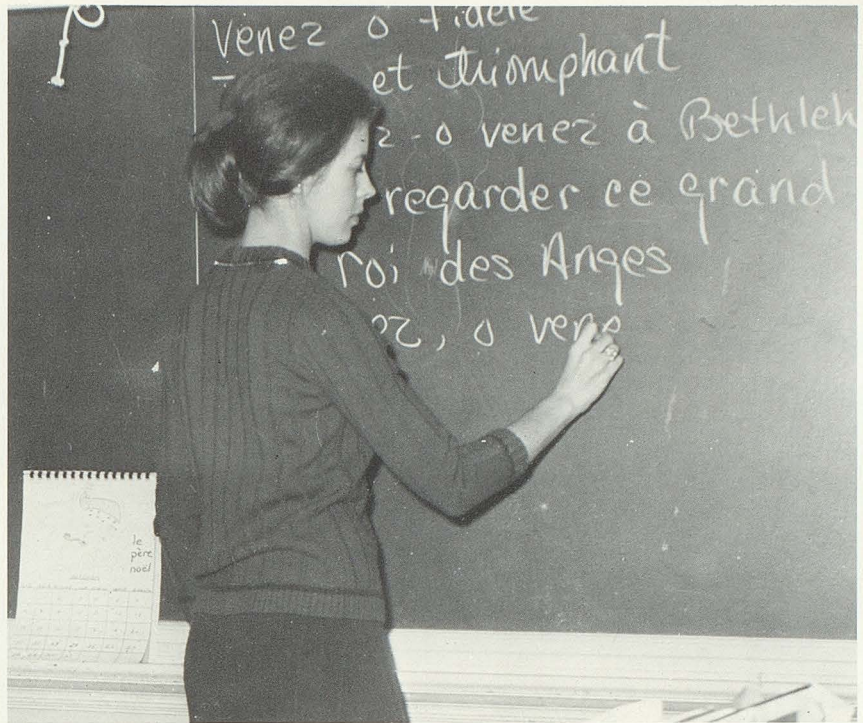 Venez o fidele
et triomphant
z - o venez à Bethleh
regarder ce grand
roi des Anges
ez, o vene
le
père
noël